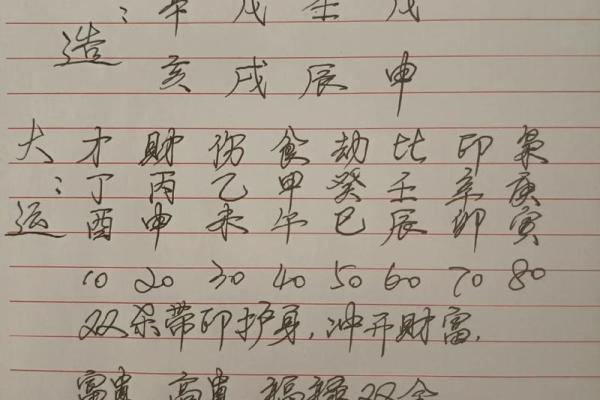 ： 辛 戊 壬 戊
造 亥 戌 辰 申
大 才 财 伤 食 劫 比 印 枭
： 丁 丙 乙 甲 癸 壬 辛 庚
运 酉 申 未 午 巳 辰 卯 寅
10 20 30 40 50 60 70 80
双杀带印护身，冲开财富.
富贵 高贵 福禄双全